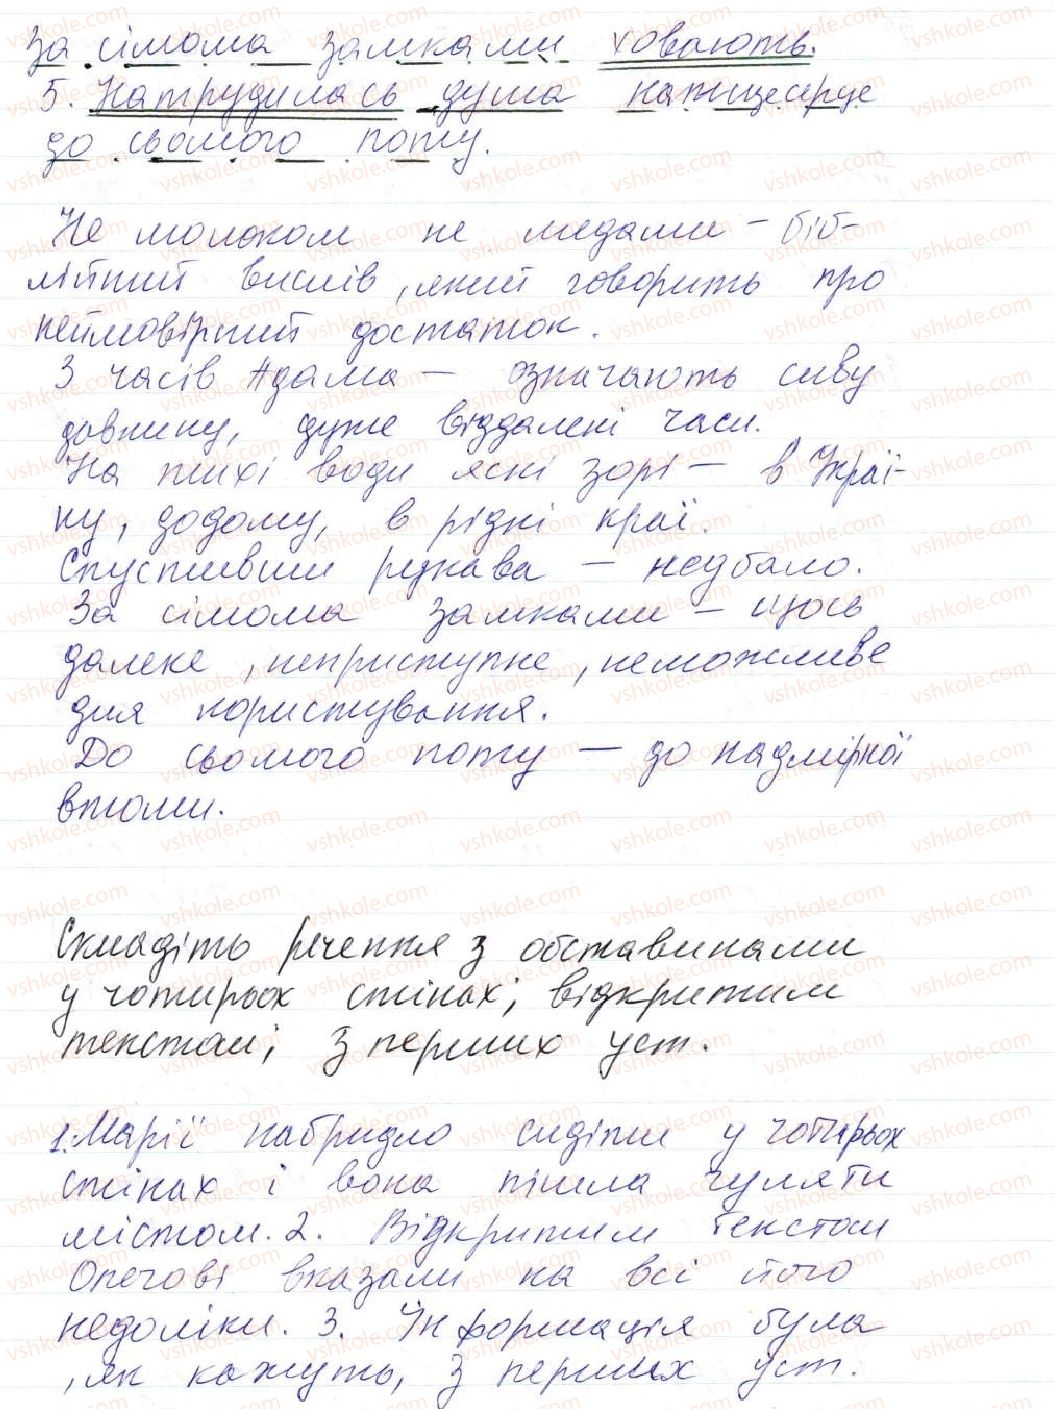 за сімома замками ховають.
5. Натрудилась душа натщесерце
до сьомого поту.
Не молоком не медами – біб-
лійний вислів, який говорить про
неймовірний достаток.
З часів Адама – означають сиву
давнину, дуже віддалені часи.
На тихі води ясні зорі – в Украї-
ну, додому, в рідні краї.
Спустивши рукава – недбало.
За сімома замками – щось
далеке, неприступне, неможливе
для користування.
До сьомого поту – до надмірної
втоми.
Складіть речення з обставинами
у чотирьох стінах; відкритим
текстом; з перших уст.
1. Марії набридло сидіти у чотирьох
стінах і вона пішла гуляти
містом. 2. Відкритим текстом
Олегові вказали на всі його
недоліки. 3. Інформація була
, як кажуть, з перших уст.